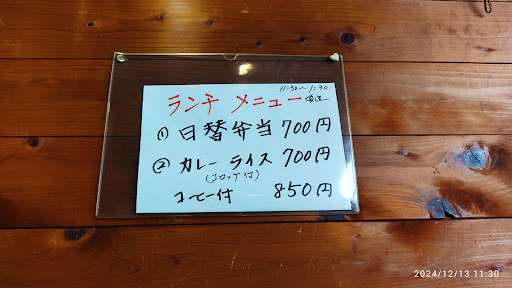 11:30～1:30
ランチ メニュー
① 日替弁当 700円
② カレーライス 700円
(コロッケ付)
コーヒー付 850円
2024/12/13 11:30